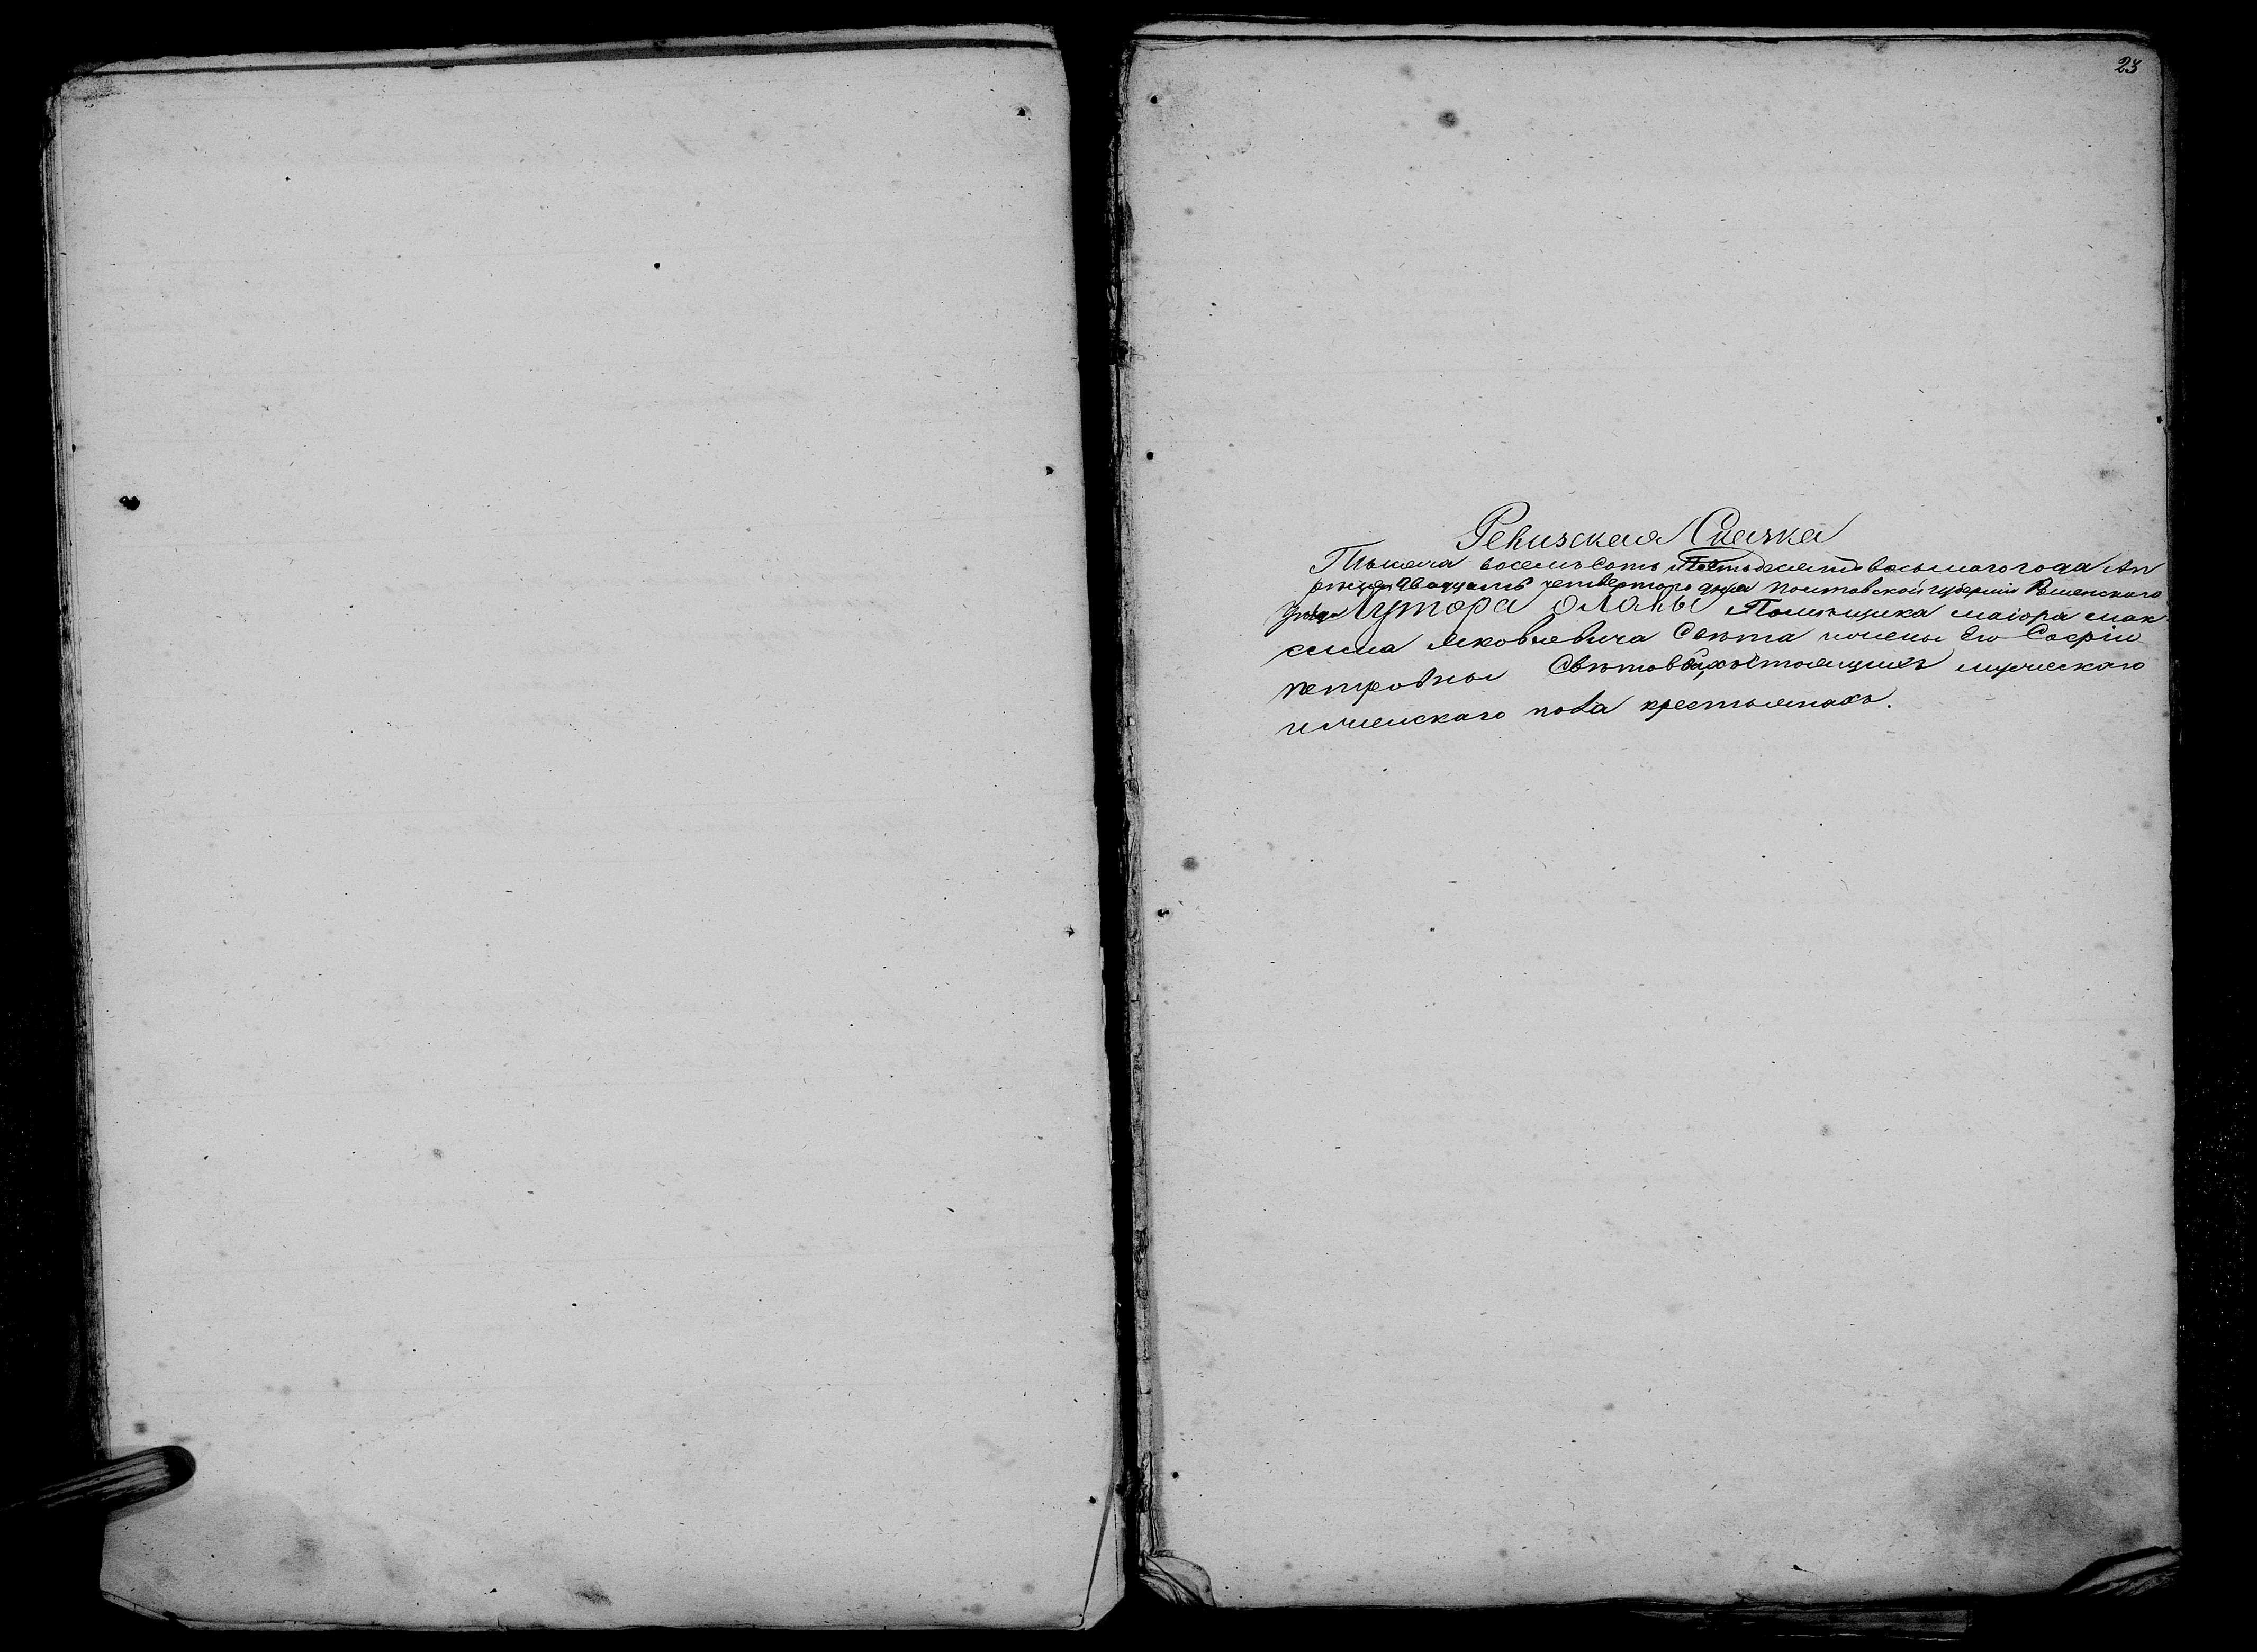 23
Ревизская Сказка
Тысяча восемьсотъ Пятьдесятъ восьмаго года Ап
рѣля двадцать четвертого дня Полтавской губерніи Роменскаго
Уѣзда Хутора Олавы Помѣщика маіора мак
сима Яковлевича Свѣта ижены Его Софіи
петровны Свѣтовыхъ остоящихъ мужескаго
иженскаго пола крестьянахъ.